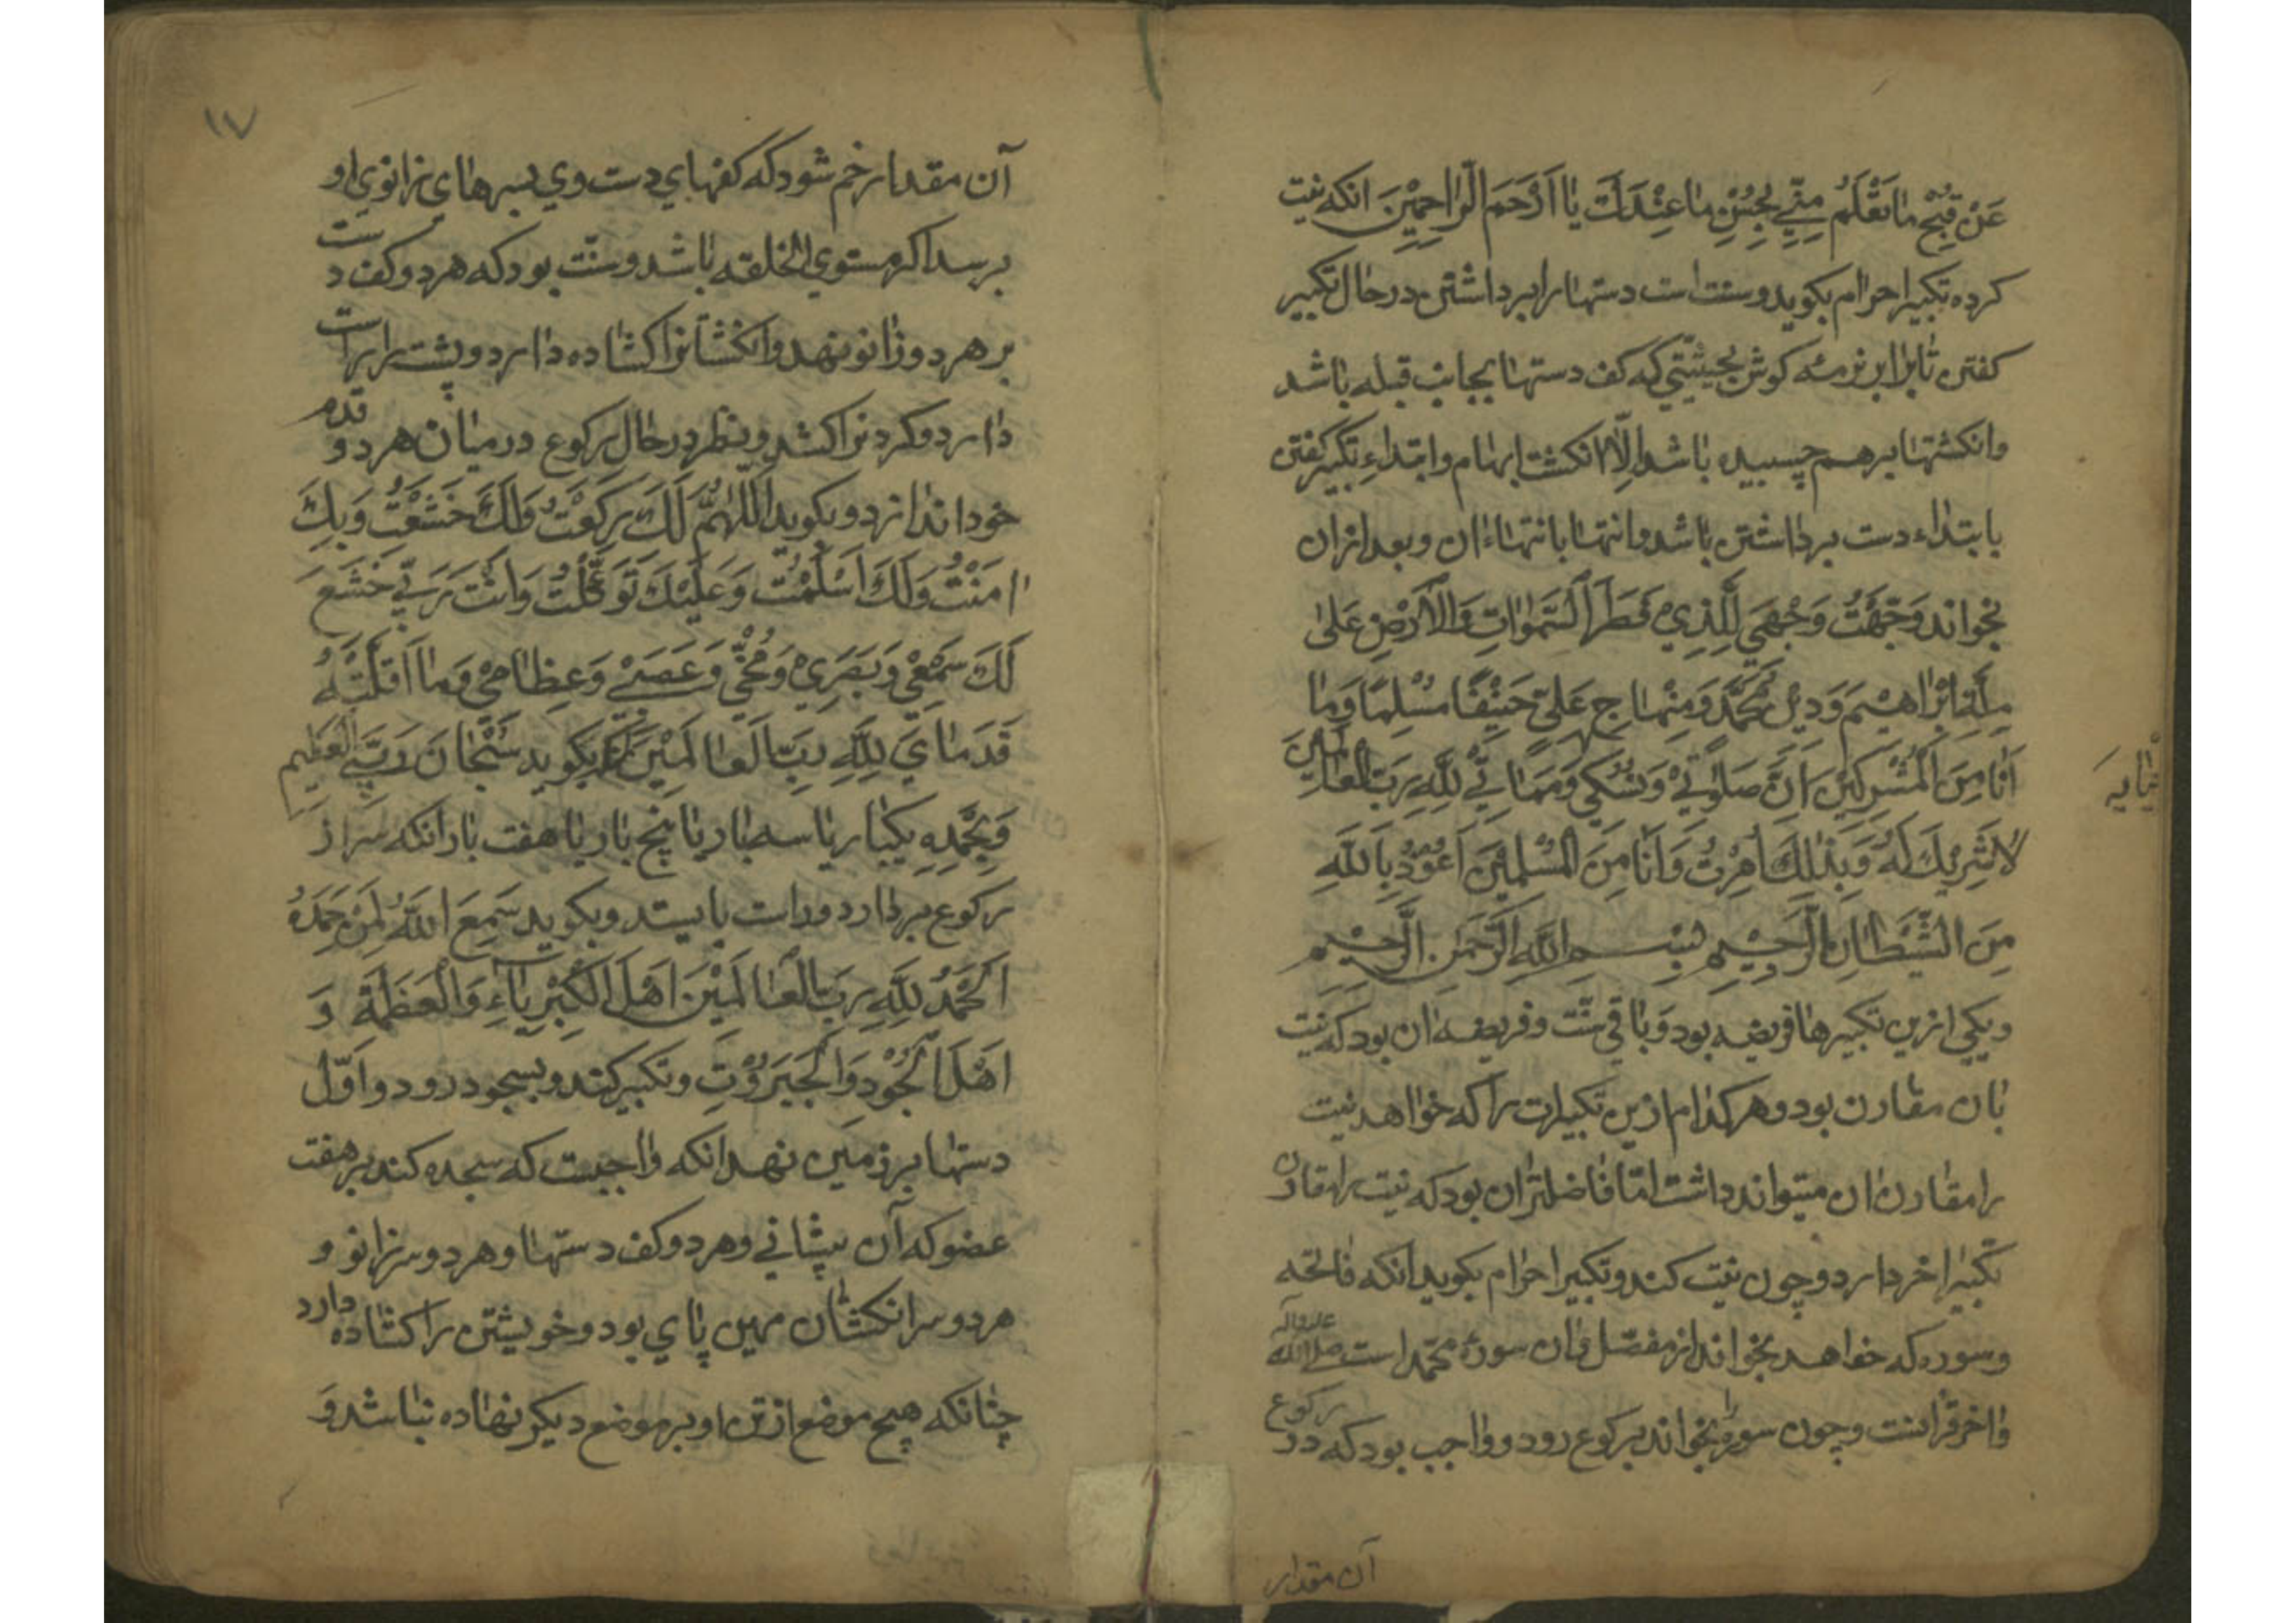 عَنْ قَبِيحِ مَا تَعْلَمُ مِنِّي بِحُسْنِ مَا عِنْدَكَ يَا اَرْحَمَ الرَّاحِمِيْنَ انکه نیت
کرده تکبیر احرام بکوید و سنت است دستها را برداشتن در حال تکبیر
کفتن تا برابر نرمهٔ کوش بحیثیتي که کف دستها بجانب قبله باشد
وانکشتها برهم چسبیده باشد اِلّا انکشت ابهام وابتداءِ تکبیر کفتن
بابتداء دست برداشتن باشد وانتها بانتهاء ان وبعد از ان
بخواند وَجَّهْتُ وَجْهِيَ لِلَّذِيْ فَطَرَ السَّمٰوَاتِ وَالْاَرْضِ عَلیٰ
مِلَّةِ اِبْرَاهِيْمَ وَدِيْنِ مُحَمَّدٍ وَمِنْهَاجِ عَلِيٍّ حَنِيْفًا مُسْلِمًا وَمَا
اَنَا مِنَ الْمُشْرِكِيْنَ اِنَّ صَلٰوتِيْ وَنُسُكِيْ وَمَمَاتِيْ لِلّٰهِ رَبِّ الْعَالَمِيْنَ
لَا شَرِيْكَ لَهُ وَبِذٰلِكَ اُمِرْتُ وَاَنَا مِنَ الْمُسْلِمِيْنَ اَعُوْذُ بِاللّٰهِ
مِنَ الشَّيْطَانِ الرَّجِيْمِ بِسْمِ اللّٰهِ الرَّحْمٰنِ الرَّحِيْمِ
ویکي ازین تکبیرها فریضه بود وباقي سنّت وفریضه ان بود که نیت
بان مقارن بود وهرکدام ازین تکبیرات را که خواهد نیت
را مقارن ان میتواند داشت امّا فاضلتر ان بود که نیت را مقارن
تکبیر اخر دارد وچون نیت کند وتکبیر احرام بکوید انکه فاتحه
وسوره که خواهد بخواند از مفصّل وان سورهٔ محمّد است صلی الله علیه وآله
تا اخر قرانست وچون سوره را بخواند برکوع رود وواجب بود که در رکوع
آن مقدار
آن مقدار خم شود که کفهاي دست وي بسرهاي زانوي او
برسد اکر مستوي الخلقه باشد وسنّت بود که هر دو کف دست
بر هر دو زانو نهد وانکشتانرا کشاده دارد وپشت را راست
دارد وکردن را کشد ونظر در حال رکوع درمیان هر دو قدم
خود اندازد وبکوید اَللّٰهُمَّ لَكَ رَكَعْتُ وَلَكَ خَشَعْتُ وَبِكَ
اٰمَنْتُ وَلَكَ اَسْلَمْتُ وَعَلَيْكَ تَوَكَّلْتُ وَاَنْتَ رَبِّيْ خَشَعَ
لَكَ سَمْعِيْ وَبَصَرِيْ وَمُخِّيْ وَعَصَبِيْ وَعِظَامِيْ وَمَا اَقَلَّتْهُ
قَدَمَايَ لِلّٰهِ رَبِّ الْعَالَمِيْنَ بکوید سُبْحَانَ رَبِّيَ الْعَظِيْمِ
وَبِحَمْدِهِ یکبار یا سه بار یا پنج بار یا هفت بار انکه سر از
رکوع بردارد وراست بایستد وبکوید سَمِعَ اللّٰهُ لِمَنْ حَمِدَهُ
اَلْحَمْدُ لِلّٰهِ رَبِّ الْعَالَمِيْنَ اَهْلَ الْكِبْرِيَاءِ وَالْعَظَمَةِ وَ
اَهْلَ الْجُوْدِ وَالْجَبَرُوْتِ وتکبیر کند وبسجود رود واوّل
دستها بر زمین نهد انکه واجبست که سجده کند بر هفت
عضو که آن پیشاني وهر دو کف دستها وهر دو سر زانو و
هر دو سر انکشتان مهین پاي بود وخویشتن را کشاده دارد
چنانکه هیچ موضع از تن او بر موضع دیکر نهاده نباشد وَ